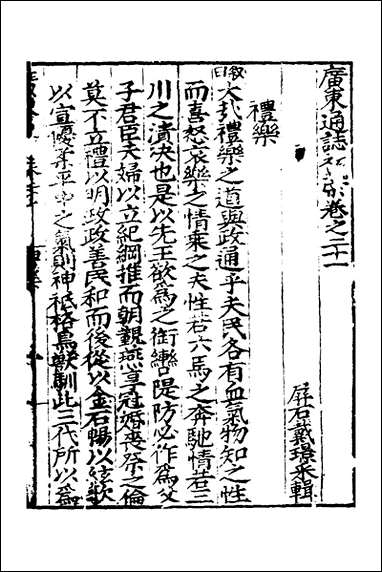 廣東通誌初藁卷之二十一
屏石戴璟采輯
禮樂
叙曰大哉禮樂之道與政通乎夫民各有血氣物知之性
而喜怒哀樂之情乘之夫性若六馬之奔馳情若三
川之潰决也是以先王欲為之銜轡隄防必作為父
子君臣夫婦以立紀綱推而朝覲燕享冠婚喪祭之倫
莫不立禮以明政政善民和而後從以金石暢以絃歌
以宣優柔平中之氣則神祇格鳥獸馴此三代所以為